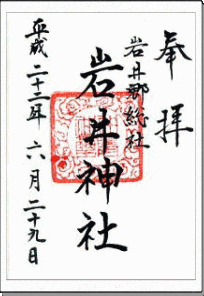 奉拝
岩井郡総社
岩井神社
平成二十二年六月二十九日